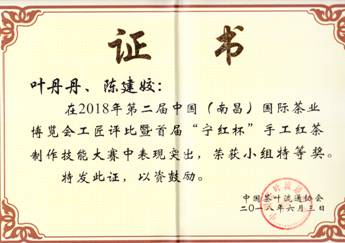 证书
叶丹丹、陈建姣：
在2018年第二届中国（南昌）国际茶业
博览会工匠评比暨首届“宁红杯”手工红茶
制作技能大赛中表现突出，荣获小组特等奖。
特发此证，以资鼓励。
中国茶叶流通协会
二〇一八年六月三日